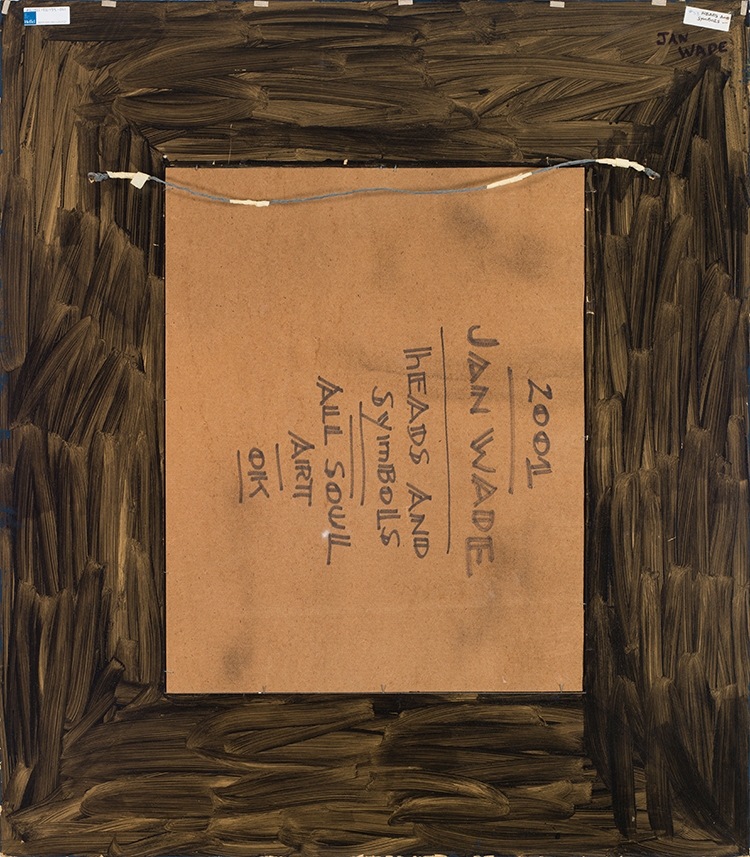 JAN
WADE
HEADS AND
SYMBOLS
2001
JAN WADE
HEADS AND
SYMBOLS
ALL SOUL
ART
OK